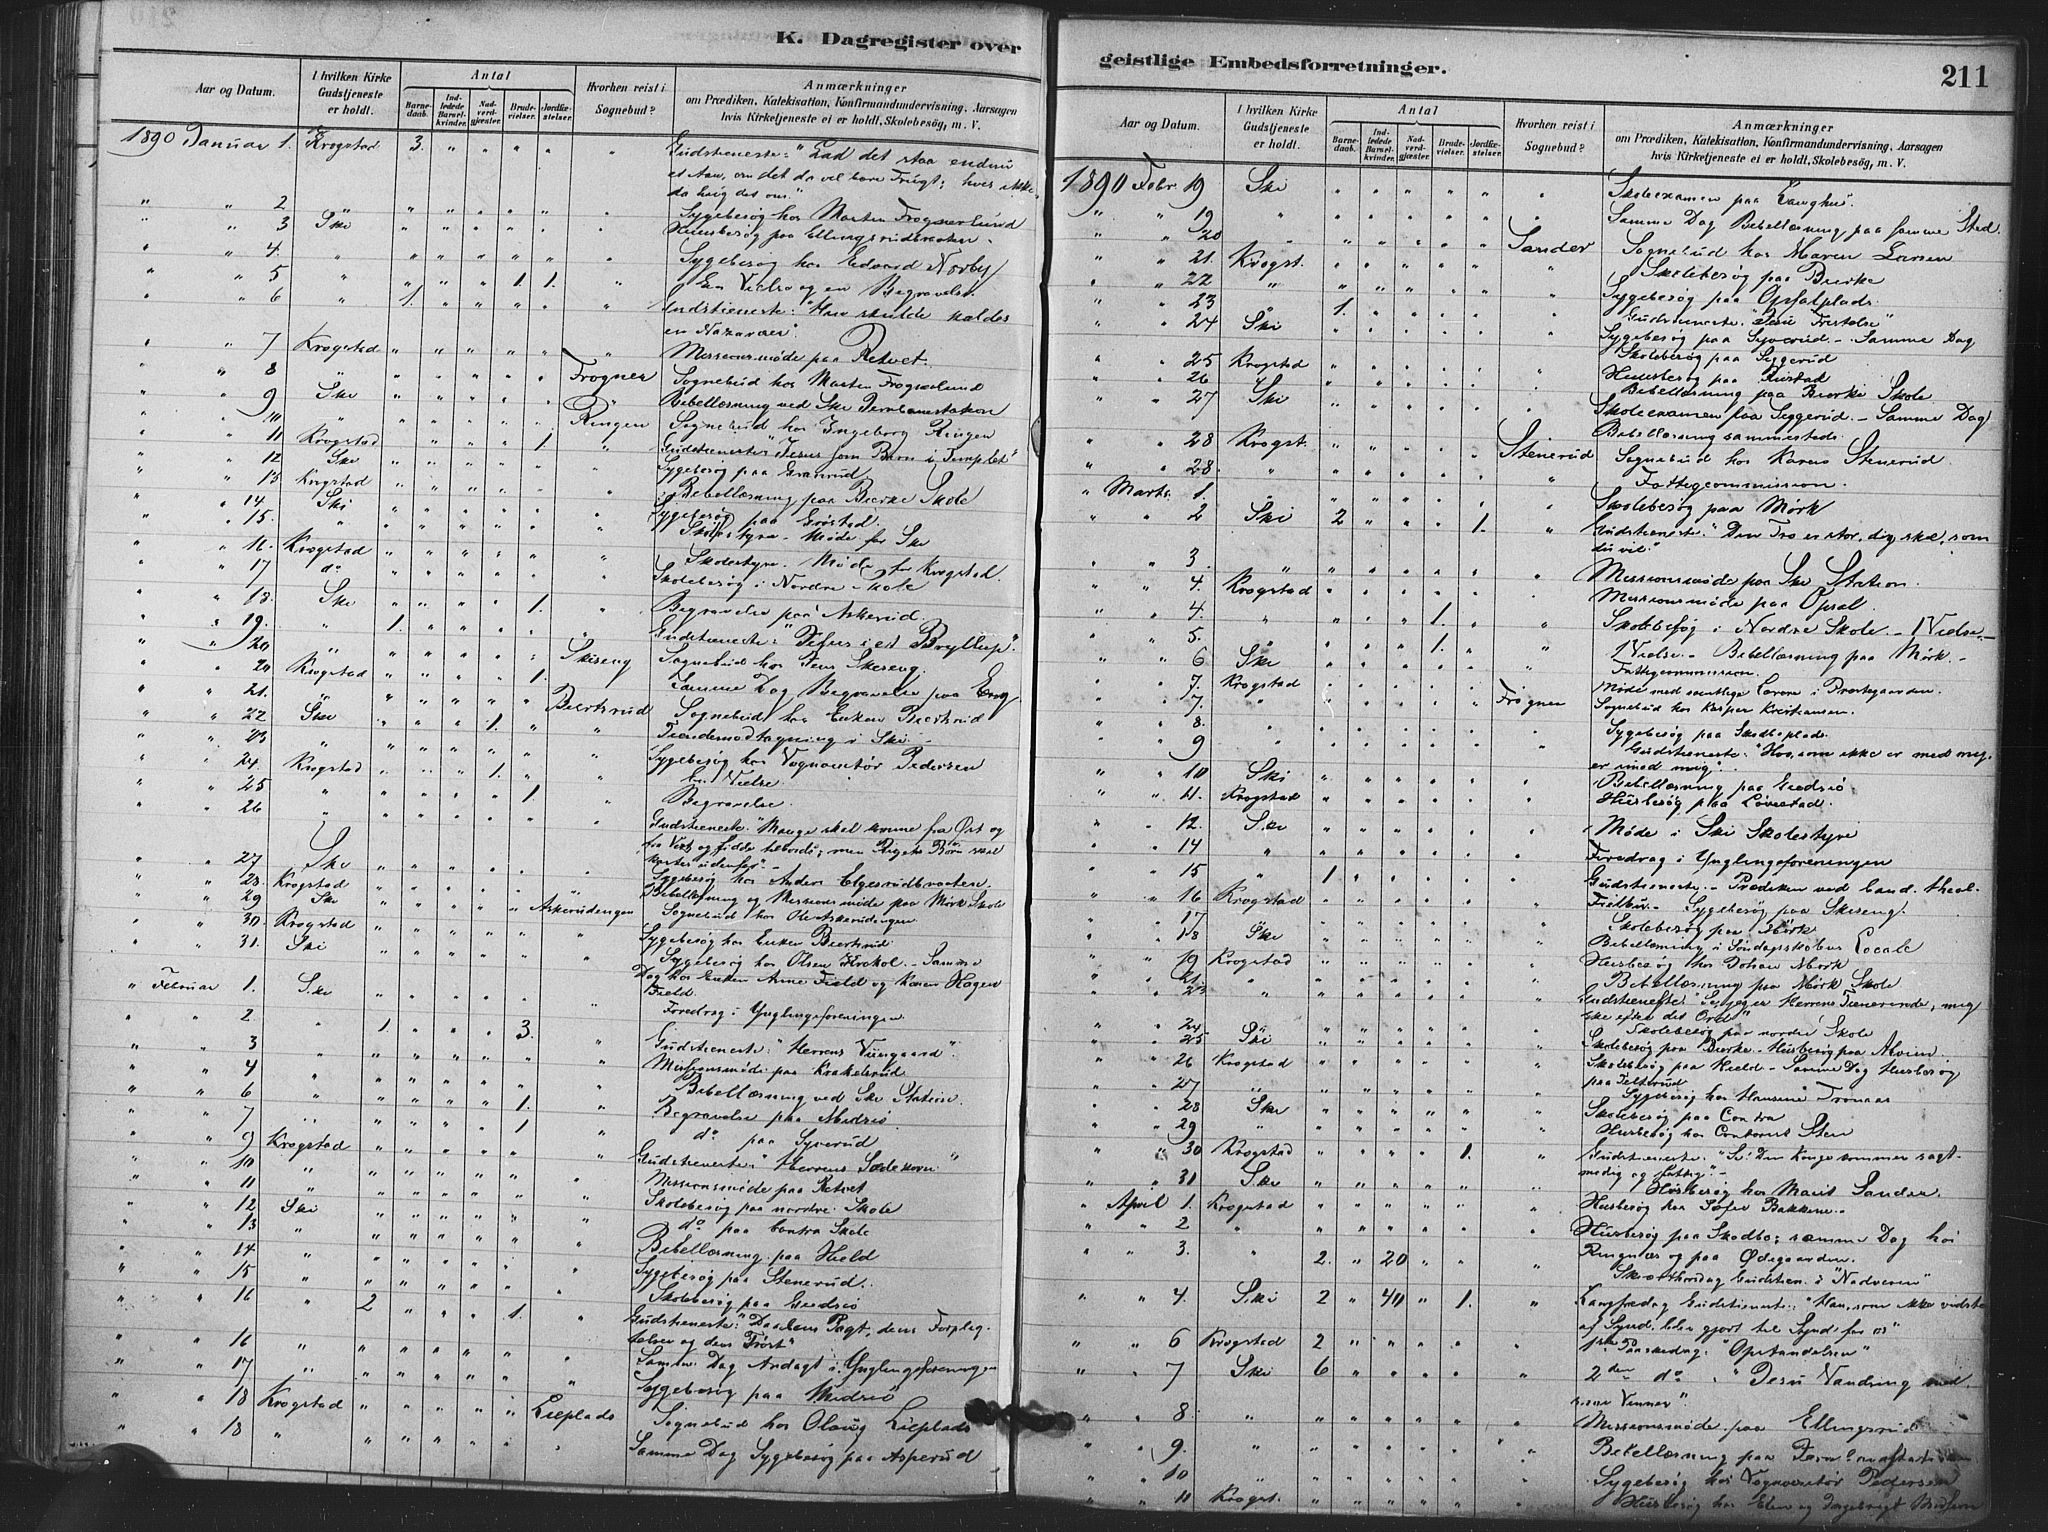 K. Dagregister over
Aar og Datum. I hvilken Kirke Gudstjeneste er holdt. Antal Barnedaab. Indledede Barselkvinder. Nadverdgjæster. Brudevielser. Jordfæstelser. Hvorhen reist i Sognebud? Anmærkninger om Prædiken, Katekisation, Konfirmandundervisning, Aarsagen hvis Kirketjeneste ei er holdt, Skolebesøg, m. V.
1890 Januar 1. Krogstad 3. " " " " " Gudstieneste: "Lad det staa endnu
et Aar, om det da vil bære Frugt; hvis ikke,
da hug det om."
" " 2 " " " " " " Sygebesøg hos Marten Frognerlund
" " 3 Ski " " " " " " Huusbesøg paa Ellingsrudbraaten
" " 4. " " " " " " " Sygebesøg hos Edvard Nørby
" " 5 " " " " 1. 1. " En Vielse og en Begravelse
" " 6 " 1. " " " " " Gudstieneste: "Han skulde kaldes
en Nazaræer".
" " 7 Krogstad " " " " " " Missionsmøde paa Retvet.
" " 8 " " " " " " Frogner Sognebud hos Marten Frognerlund
" " 9 Ski " " " " " " Bibellæsning ved Ski Jernbanestation
" " 10 " " " " " " Ringen Sognebud hos Ingeborg Ringen
" " 11 Krogstad " " " " 1. " Gudstieneste "Jesus som Barn i Templet"
" " 12 Ski " " " " " " Sygebesøg paa Granrud
" " 13 Krogstad " " " " " " Bibellæsning paa Bierke Skole
" " 14 Ski " " " " " " Sygebesøg paa Grøstad.
" " 15. " " " " " " " Skolestyre-Møde for Ski
" " 16. Krogstad " " " " " " Skolestyre-Møde for Krogstad.
" " 17 do " " " " " " Skolebesøg i Nordre Skole
" " 18. Ski " " " " 1. " Begravelse paa Askerud.
" " 19. " 1. " " " " " Gudstieneste: "Jesus i et Bryllup".
" " 20 " " " " " " Skiseng Sognebud hos Jens Skiseng.
" " 20 Krogstad " " " " 1. " Samme Dag Begravelse paa Eng
" " 21. " " " " " " Biertrud Sognebud hos Enken Biertrud
" " 22 Ski " " " 1. " " Tiendemodtagning i Ski
" " 23 " " " " " " " Sygebesøg hos Vognventør Pedersen
" " 24. Krogstad " " " 1. " " En Vielse
" " 25 " " " " " 1. " Begravelse.
" " 26 " " " " " " " Gudstieneste. "Mange skal komme fra Øst og
fra Vest og sidde tilbords; men Rigets Børn skal
kastes udenfor".
" " 27 Ski " " " " " " Sygebesøg hos Anders Elgesrudbraaten.
" " 28. Krogstad " " " " " " Bibellæsning og Missionsmøde paa Mørk Skole
" " 29 Ski " " " " " Askerudengen Sognebud hos Ole Askerudengen
" " 30. Krogstad " " " " " " Sygebesøg hos Enken Biertrud
" " 31. Ski " " " " " " Sygebesøg hos Olsen Krokol. Samme
Dag hos Enken Anne Field og Karen Hagen
Field.
" Februar 1. Ski " " " " " " Foredrag i Ynglingeforeningen
" " 2 " 1. " " 3. " " Gudstieneste: "Herrens Viingaard".
" " 3 " " " " " " " Missionsmøde paa Krakelsrud
" " 4 " " " " " " " Bibellæsning ved Ski Station.
" " 6 " " " " " 1. " Begravelse paa Midsiø.
" " 7 " " " " " 1 " do paa Syverud
" " 9 Krogstad " " " " " " Gudstieneste: "Herrens Sædekorn"
" " 10 " " " " " " " Missionsmøde paa Retvet
" " 11 " " " " " " " Skolebesøg paa nordre Skole
" " 12 Ski " " " " " " do paa Contra Skole
" " 13 " " " " " " " Bibellæsning paa Hield
" " 14 " " " " " " " Sygebesøg paa Stenerud.
" " 15 " " " " " " " Skolebesøg paa Giedsiø
" " 16 " 2 " " " 1. " Gudstieneste: "Daabens Pagt, dens Forplig-
telser og dens Trøst"
" " 16 " " " " " " " Samme Dag Andagt i Ynglingeforeningen
" " 17 " " " " " " " Sygebesøg paa Midsiø
" " 18 Krogstad " " " " " Lieplads Sognebud hos Olaug Lieplads
" " 18 " " " " " " " Samme Dag Sygebesøg paa Asperud
geistlige Embedsforretninger.
211
Aar og Datum. I hvilken Kirke Gudstjeneste er holdt. Antal Barnedaab. Indledede Barselkvinder. Nadverdgjæster. Brudevielser. Jordfæstelser. Hvorhen reist i Sognebud? Anmærkninger om Prædiken, Katekisation, Konfirmandundervisning, Aarsagen hvis Kirketjeneste ei er holdt, Skolebesøg, m. V.
1890 Febr. 19 Ski " " " " " " Skoleexamen paa Langhus.
" " 19 " " " " " " " Samme Dag Bibellæsning paa samme Sted.
" " 20 " " " " " " Sander Sognebud hos Maren Larsen
" " 21. Krogst. " " " " " " Skolebesøg paa Bierke
" " 22 " " " " " " " Sygebesøg paa Opsalplads.
" " 23 " 1. " " " " " Gudstieneste. "Jesu Fristelse"
" " 24 Ski " " " " " " Sygebesøg paa Syverud. Samme Dag
Skolebesøg paa Siggerud
" " 25 Krogstad " " " " " " Huusbesøg paa Rustad
" " 26 " " " " " " " Bibellæsning paa Bierke Skole
" " 27 Ski " " " " " " Skoleexamen paa Siggerud. Samme Dag
Bibellæsning sammesteds.
" " 28 Krogst. " " " " " Stenerud Sognebud hos Karen Stenerud.
" " 28. " " " " " " " Fattigcommission.
" Marts 1. " " " " " " " Skolebesøg paa Mørk
" " 2 Ski 2 " " " 1. " Gudstieneste: "Din Tro er stor, dig ske, som
du vil."
" " 3. " " " " " " " Missionsmøde paa Ski Station.
" " 4. Krogstad " " " " " " Missionsmøde paa Opsal.
" " 4. " " " " 1. " " Skolebesøg i Nordre Skole. 1 Vielse.
" " 5. " " " " 1. " " 1 Vielse. Bibellæsning paa Mørk.
" " 6 Ski " " " " " " Fattigcommission.
" " 7. Krogstad " " " " " " Møde med samtlige Lærere i Præstegaarden.
" " 7. " " " " " " Frogner Sognebud hos Kasper Kristiansen.
" " 8. " " " " " " " Sygebesøg paa Skodboplads.
" " 9 " " " " " " " Gudstieneste: "Hvo, som ikke er med mig,
er imod mig".
" " 10 Ski " " " " " " Bibellæsning paa Giedsiø
" " 11. Krogstad " " " " " " Husbesøg paa Løvestad.
" " 12. Ski " " " " " " Møde i Ski Skolestyre
" " 14 " " " " " " " Foredrag i Ynglingeforeningen
" " 15 " 1 " " " " " Gudstieneste. Prædiken ved Cand. theol.
" " 16 Krogstad " " " " " " Fielbu. Sygebesøg paa Skiseng.
" " 17 " " " " " " " Skolebesøg paa Mørk
" " 18 Ski " " " " " " Bibellæsning i Søndagsskolens Locale
" " 19 Krogstad " " " " " " Husbesøg hos Johan Mørk
" " 21 " " " " " " " Bibellæsning paa Mørk Skole
" " 23 " " " " " " " Gudstieneste "Se, jeg er Herrens Tienerinde, mig
ske efter dit Ord"
" " 24 Ski " " " " " " Skolebesøg paa nordre Skole
" " 25 " " " " " " " Skolebesøg paa Bierke. Husbesøg paa Moien.
" " 26 Krogstad " " " " " " Skolebesøg paa Hield. Samme Dag Husbesøg
paa Felterud
" " 27 " " " " " " " Sygebesøg hos Hansine Tronaas
" " 28 Ski " " " " " " Skolebesøg paa Contra
" " 29 " " " " " " " Husbesøg hos Contorist Sten
" " 30 Krogstad " " " " 1. " Gudstieneste. "Se! Din Konge kommer sagt-
modig og fattig".
" " 31 Ski " " " " " " Husbesøg hos Marit Sander.
" April 1. Krogstad " " " " " " Husbesøg hos Sofie Bakkene.
" " 2 " " " " " " " Husbesøg paa Skodbo; samme Dag hos
" " 3. " 2. " 20 " " " Ringnæs og paa Ødegaarden.
Skærthorsdag Gudstien. i "Nadveren"
" " 4. Ski 2 " 40 " 1. " Langfredag Gudstieneste: "Han, som ikke vidste
af Synd, blev gjort til Synd for os"
" " 6 Krogstad 2 " " " " " 1ste Paaskedag. "Opstandelsen"
" " 7 Ski 6 " " " " " 2den do. "Jesu Vandring med
sine Venner".
" " 8. " " " " " " " Missionsmøde paa Ellingsrud
" " 9. " " " " " " " Bibellæsning paa Jernbanestationen
" " 10 " " " " " " " Sygebesøg hos Vognventør Pedersen
" " 11 Krogst. " " " " " " Husbesøg hos Elen og Ingebrigt Midsien